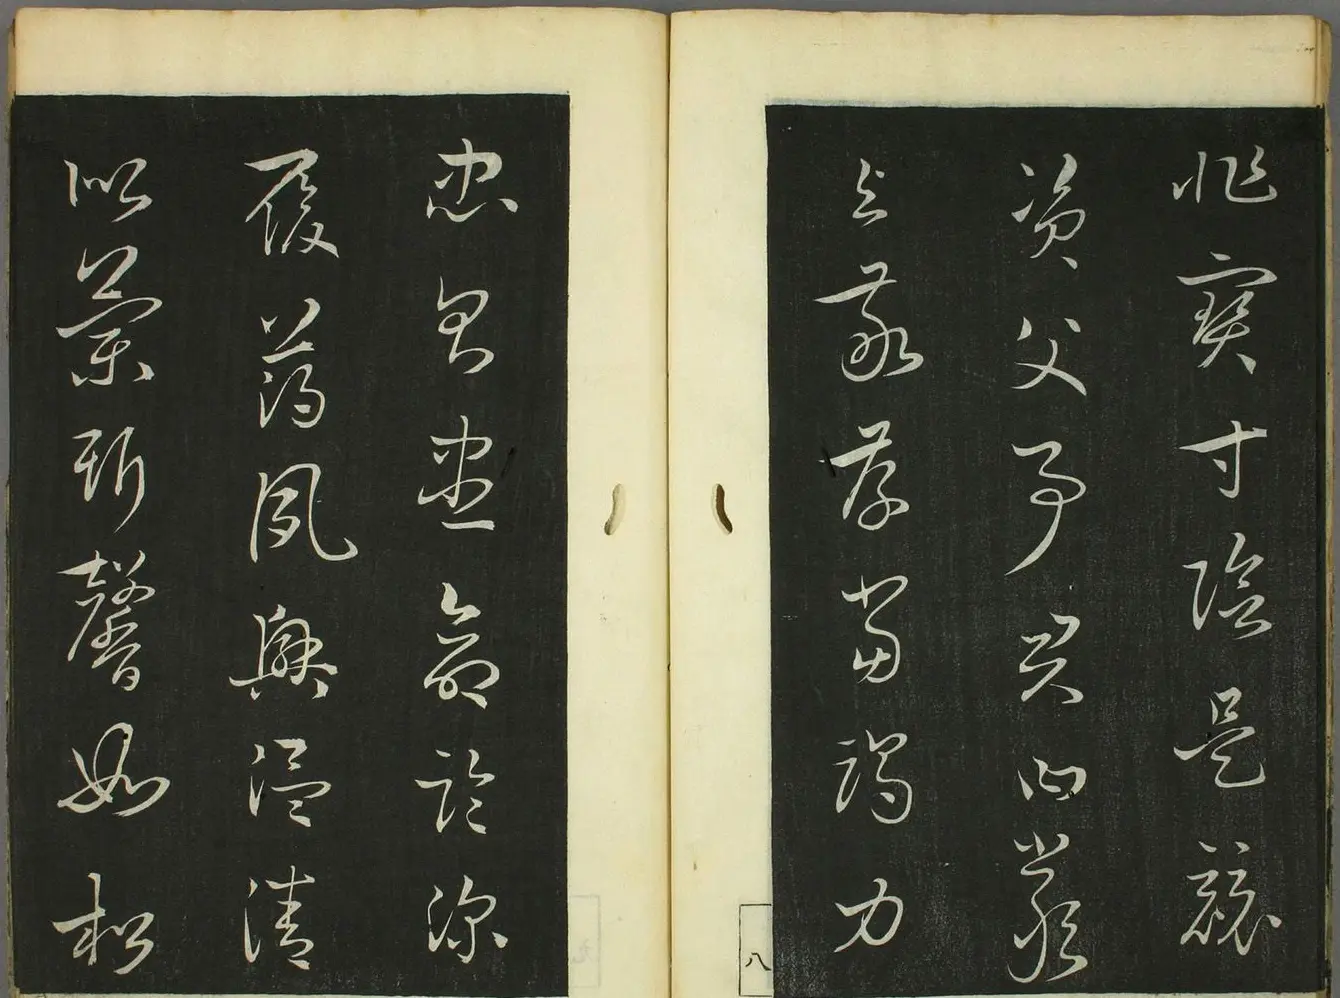 非寶寸陰是競
資父事君曰嚴
與敬孝當竭力
八
忠則盡命臨深
履薄夙興溫清
似蘭斯馨如松